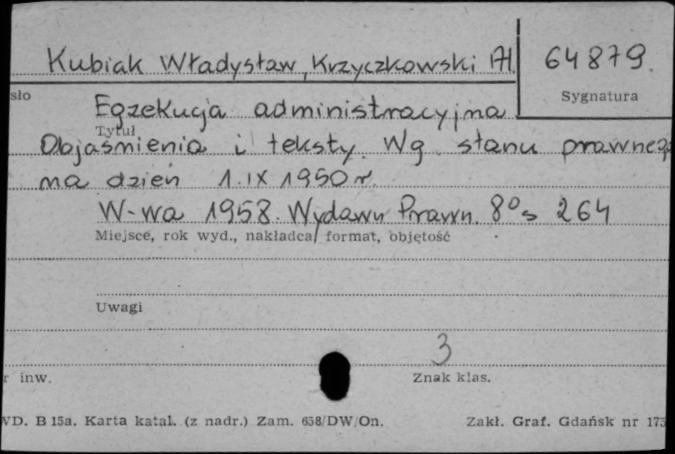 Kubiak Władysław, Krzyczkowski H. 64879.
sło Sygnatura
Egzekucja administracyjna
Tytuł
Objaśnienia i teksty. Wg. stanu prawneg
na dzień 1.IX 1950 r.
W-wa 1958. Wydawn Prawn. 8° s 264
Miejsce, rok wyd., nakładca, format, objętość
Uwagi
3
r inw. Znak klas.
WD. B 15a. Karta katal. (z nadr.) Zam. 658/DW/On. Zakł. Graf. Gdańsk nr 175